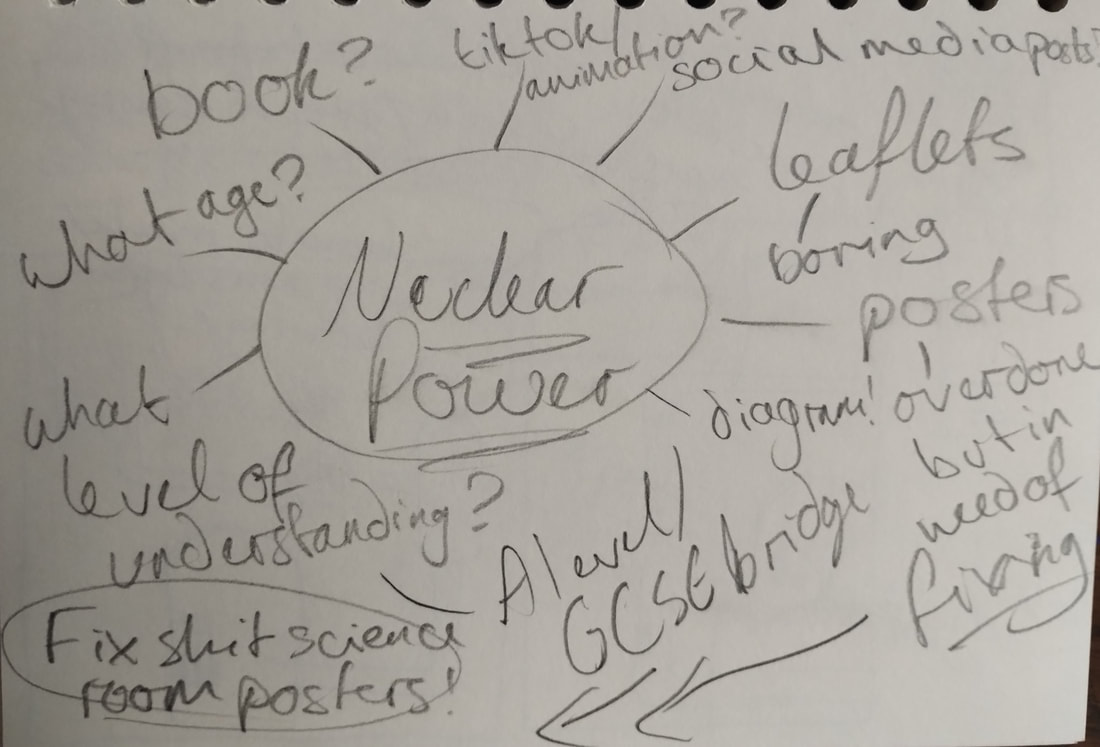 book?
tiktok/
animation?
social media posts?
leaflets
boring
what age?
Nuclear
Power
posters
overdone
but in
need of
fixing
diagram!
what
level of
understanding?
A level/
GCSE bridge
Fix shit science
room posters!